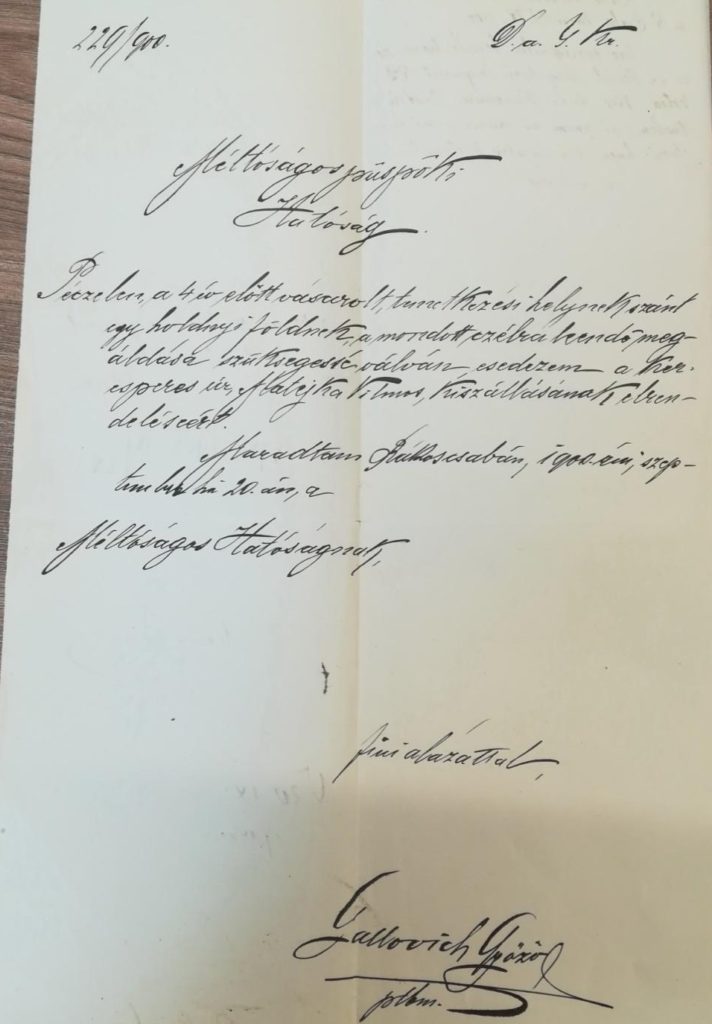 229/900.
D. a. J. Kr.
Méltóságos püspöki
Hatóság.
Péczelen, a 4 év előtt vásárolt, temetkezési helynek szánt
egy holdnyi földnek, a mondott czélra leendő meg-
áldása szükségessé válván, esedezem a ker.
esperes úr, Matejka Vilmos, kiszállásának elren-
deléseért.
Maradtam Rákoscsabán, 1900. évi szep-
tember hó 20. án, a
Méltóságos Hatóságnak,
fiúi alázattal,
Gallovich Győző
plbn.